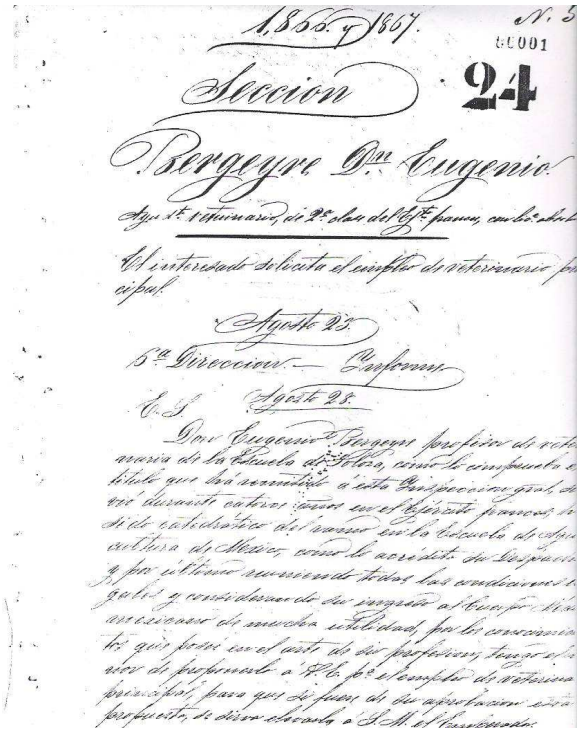 1,866. y 1867.
N. 5
00001
24
Seccion
Bergeyre Dn. Eugenio.
Ayu te. veterinario, de 2a. clase del Ejto. frances,
El interesado solicita el empleo de veterinario prin
cipal.
Agosto 23.
5a Direccion. — Informe
Agosto 28.
E. S.
Don Eugenio Bergeyre profesor de vete
rinaria de la Escuela de Tolosa, como lo comprueba el
titulo que há remitido á esta Inspeccion gral, sir
vió durante catorce años en el Ejército francés, há
sido catedrático del ramo en la Escuela de Agri
cultura de Mexico, como lo acredita su Despacho
y por último reuniendo todas las condiciones le
gales y considerando su ingreso al Cuerpo
mexicano de mucha utilidad, por los conocimien
tos que poseé en el arte de su profesion, tengo el ho
nor de proponerlo á V. E. pa. el empleo de veterinario
principal, para que si fuere de su aprobacion esta
propuesta, se sirva elevarla á S. M. el Emperador.